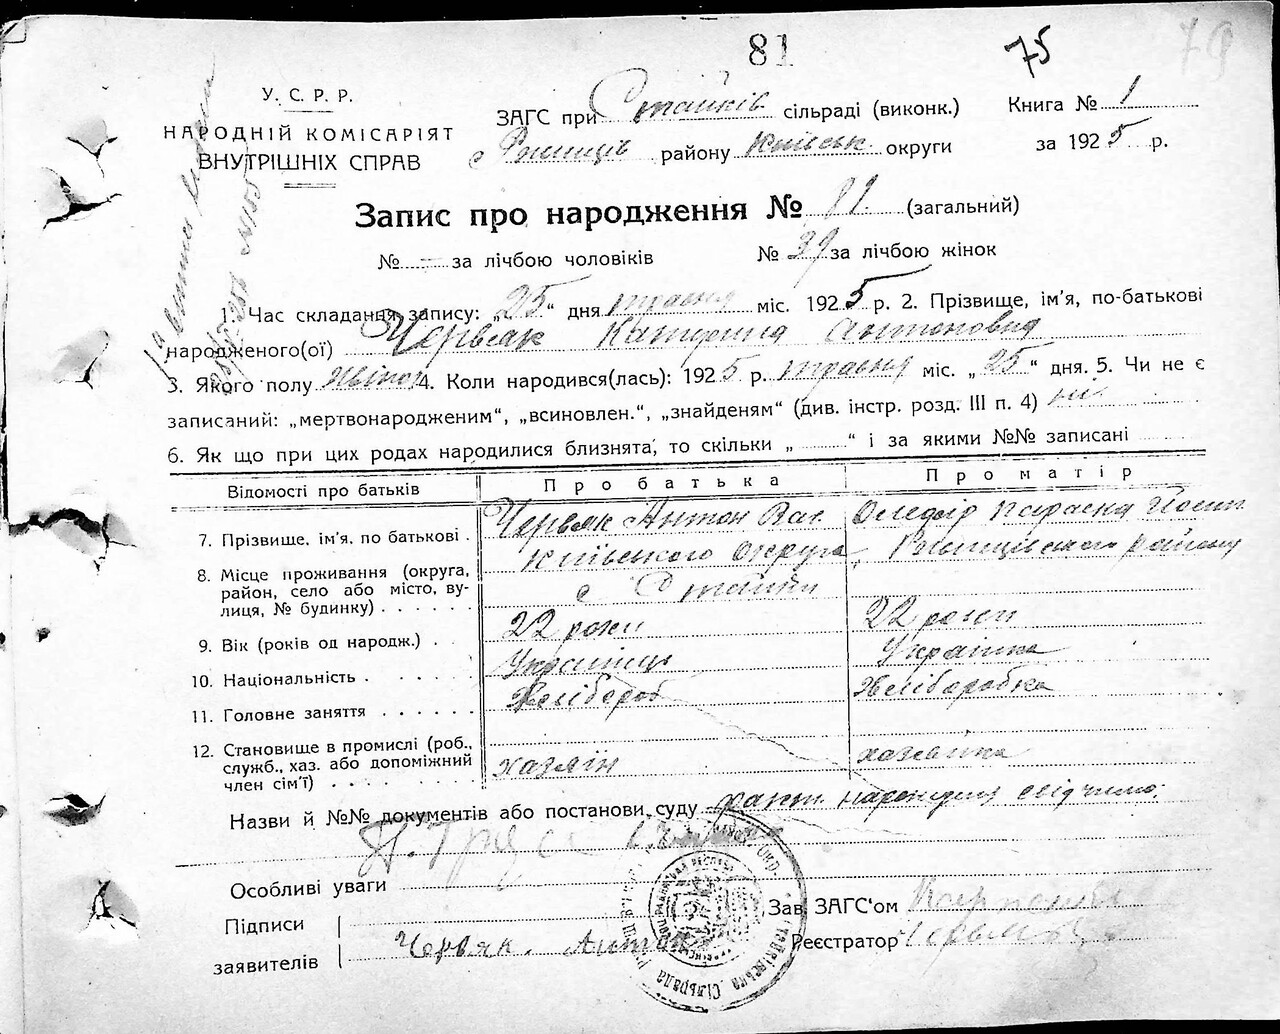 81
75
79
У. С. Р. Р.
НАРОДНІЙ КОМІСАРІЯТ
ВНУТРІШНІХ СПРАВ
ЗАГС при Стайків сільраді (виконк.)
Ржищів району Київськ округи
Книга № 1
за 1925 р.
Запис про народження № 81. (загальний)
№ — за лічбою чоловіків № 39 за лічбою жінок
1. Час складання запису: „25“ дня травня міс. 1925 р. 2. Прізвище, ім'я, по-батькові
народженого(ої) Червяк Катерина Антоновна
3. Якого полу жіноч 4. Коли народився(лась): 1925 р. травня міс. „25“ дня. 5. Чи не є
записаний: „мертвонародженим“, „всиновлен.“, „знайденям“ (див. інстр. розд. III п. 4) ні
6. Як що при цих родах народилися близнята, то скільки „ “ і за якими №№ записані
Відомості про батьків Про батька Про матір
7. Прізвище, ім'я, по батькові . Червяк Антон Параска
8. Місце проживання (округа, Київського округа, Ржищівського району
район, село або місто, ву- с Стайки
лиця, № будинку) . . . . . .
9. Вік (років од народж.) . . 22 роки 22 роки
10. Національність . . . . . Українець Українка
11. Головне заняття . . . . . . Хлібороб Хліборобка
12. Становище в промислі (роб.,
служб., хаз. або допоміжний хазяїн хазяйка
член сім'ї) . . . . .
Назви й №№ документів або постанови суду факт народження свідчимо:
Особливі уваги
Підписи
заявителів Червяк Антон
Зав. ЗАГС'ом
Реєстратор
Стайківська Сільрада